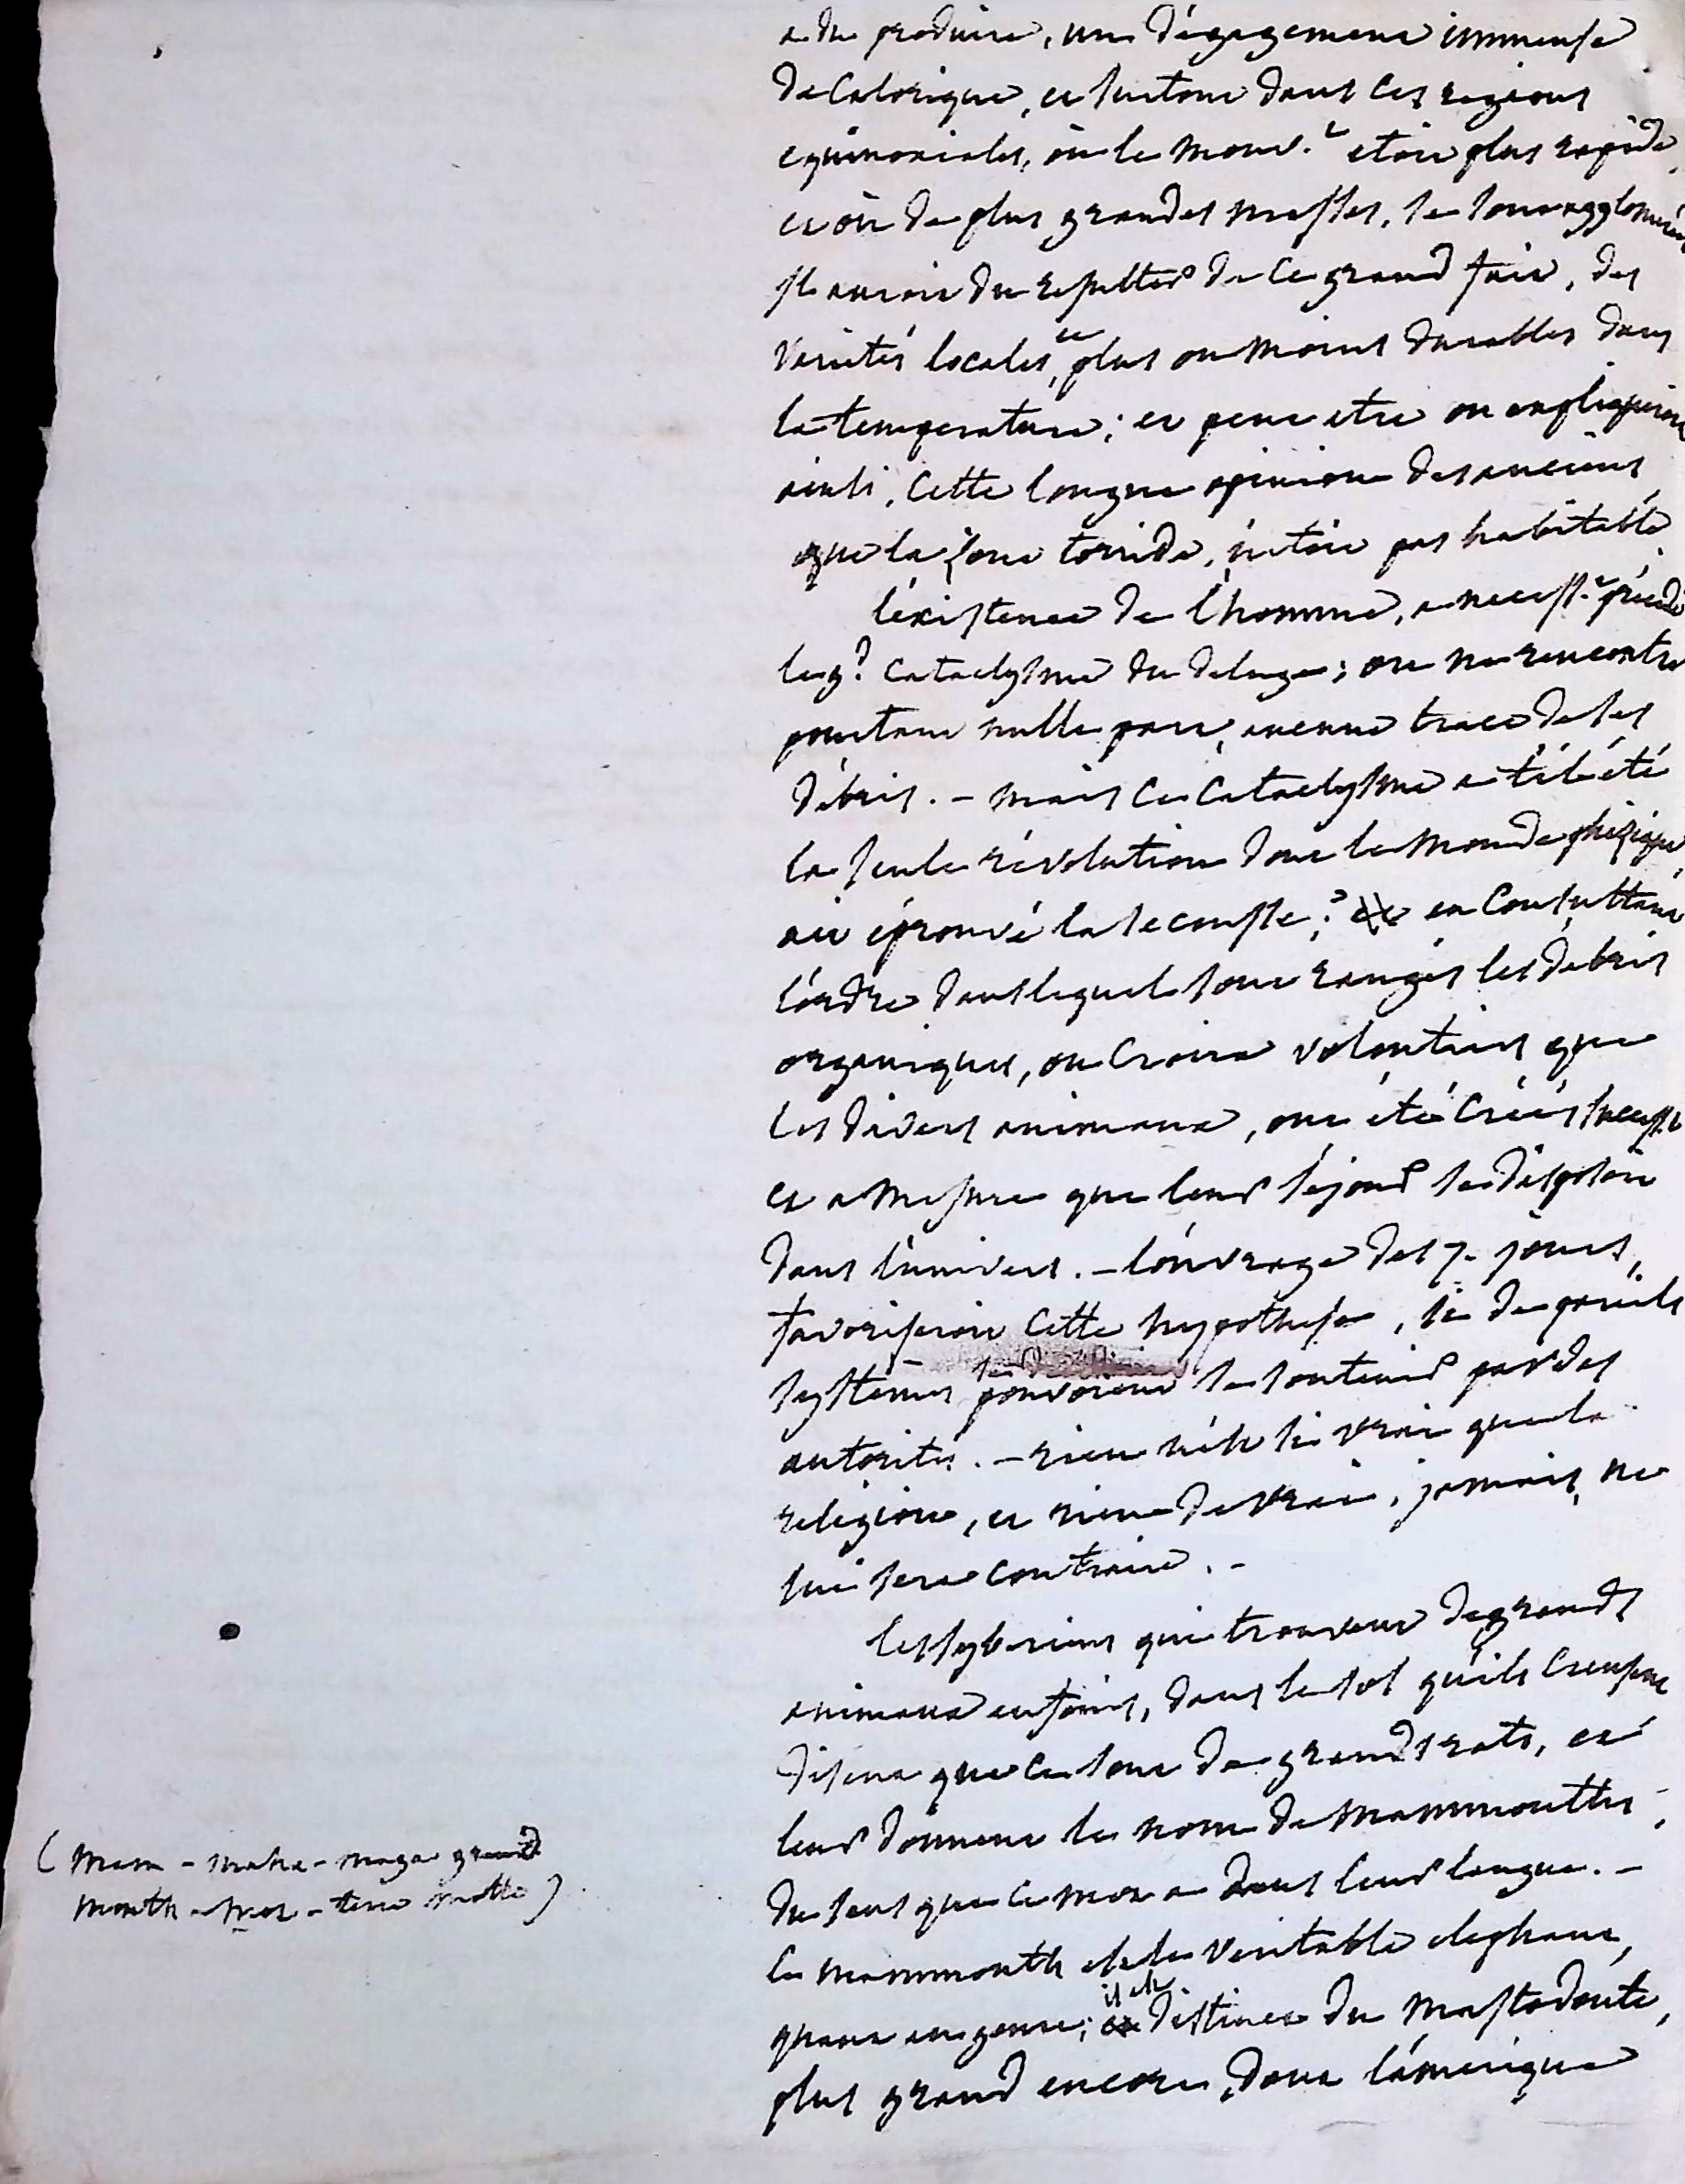 a du produire, un dégagement immense
de Calorique, et surtout dans les regions
equinoxiales, où le mouv.t etoit plus rapide,
et où de plus grandes masses, se sont agglomerées
il auroit du resulter de ce grand fait, des
Varietés locales, et plus ou moins durables dans
la temperature; et peut etre on expliqueroit
ainsi, Cette longue opinion des anciens
que la Zone torride, n'etoit pas habitable.
l'existence de l'homme, a necess.t précédé
le g.d Cataclysme du deluge; on ne rencontre
pourtant nulle part, aucune trace de ses
débris. - mais Ce Cataclysme a t'il été
la seule révolution dont le monde phisique,
ait éprouvé la secousse; ? en Consultant
l'ordre dans lequel sont rangés les débris
organiques, on Croira volontiers que
les divers animaux, ont été Créés success.t
et a mesure que leur séjour se disposoit
dans l'univers. - l'ouvrage des 7. jours,
favoriseroit Cette hypothese, si de pareils
systèmes pouvoient se soutenir par des
autorités. - rien n'est si vrai que la
religion, et rien de vrai, jamais, ne
lui sera Contraire. -
les syberiens qui trouvent de grands
animaux enfouis, dans le sol qu'ils Creusent
disent que ce sont de grands rats, et
leur donnent le nom de Mammouths,
du sens que ce mot a dans leur langue. -
(mam - maha - maga grand
mouth - - terre motte)
le mammouth est le veritable elephant,
quant au genre; il est distinct du Mastodonte,
plus grand encore, dont l'amerique